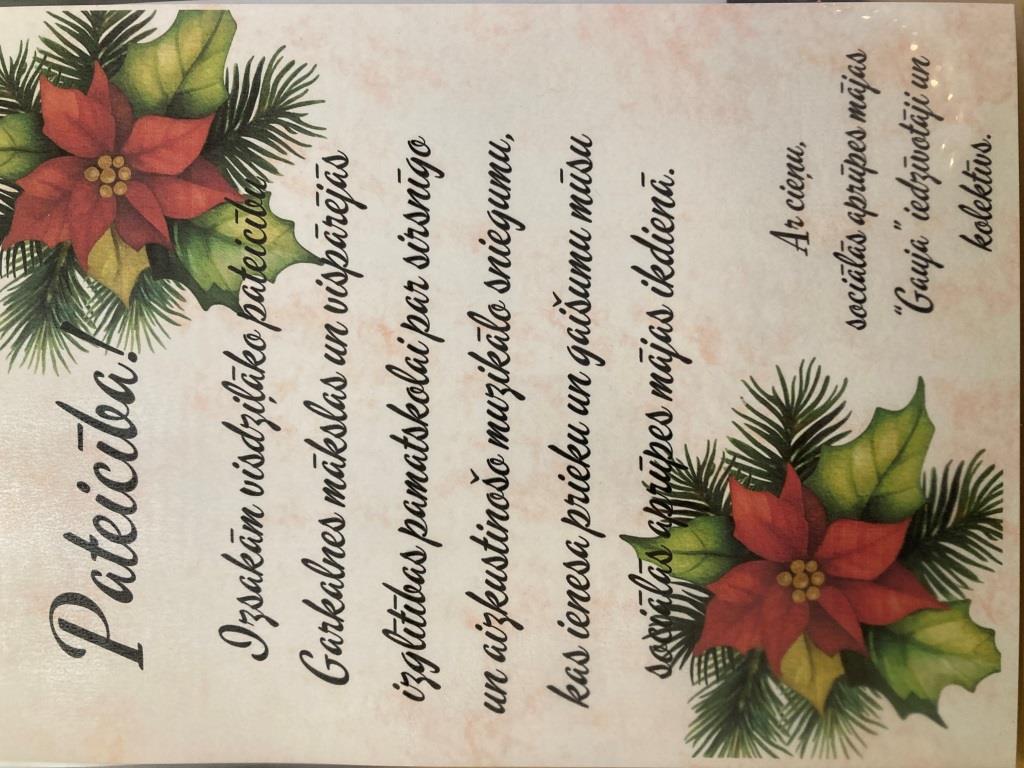 Pateicība!
Izsakām visdziļāko pateicību
Garkalnes mākslas un vispārējās
izglītības pamatskolai par sirsnīgo
un aizkustinošo muzikālo sniegumu,
kas ienesa prieku un gaišumu mūsu
sociālās aprūpes mājas ikdienā.
Ar cieņu,
sociālās aprūpes mājas
"Gauja" iedzīvotāji un
kolektīvs.